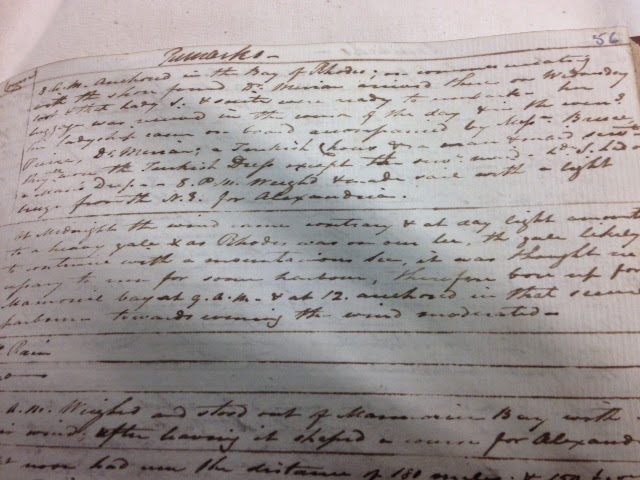 56
Remarks -
8 A.M. anchored in the Bay of Rhodes; on communicating
with the shore found Dr. Merion arrived there on Wednesday
last & that Lady S. & suite were ready to embark - her
baggage was received in the course of the day & in the
her ladyship came on board accompanied by Messrs. Bruce,
Dr. Merion, a Turkish & a
the Turkish Dress except the Ly. S. had on
a Dress - 8 P.M. Weighed & made sail with a light
from the N.E. for Alexandria.
At Midnight the wind came contrary & at day light
to a heavy gale & as Rhodes was on our lee, the gale likely
to continue with a mountainous sea, it was thought
to run for some harbour, therefore bore up for
Mamorice bay at 9 A.M. & at 12 anchored in that
harbour towards evening the wind moderated -
Rain
A.M. Weighed and stood out of Mamorice Bay with
wind, after leaving it shaped a course for
noon had run the distance of 180 miles, &